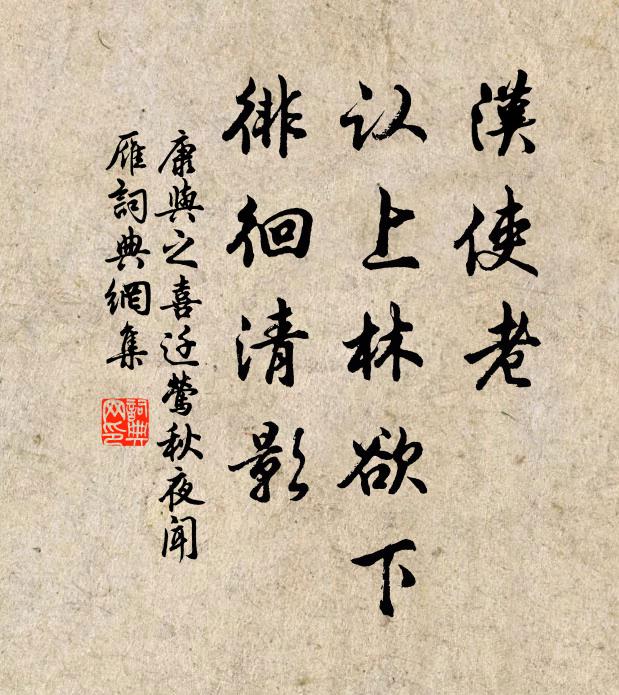 漢使老
认上林欲下
徘徊清影
康與之喜迁鶯秋夜聞
雁詞典網集
詞典
网印